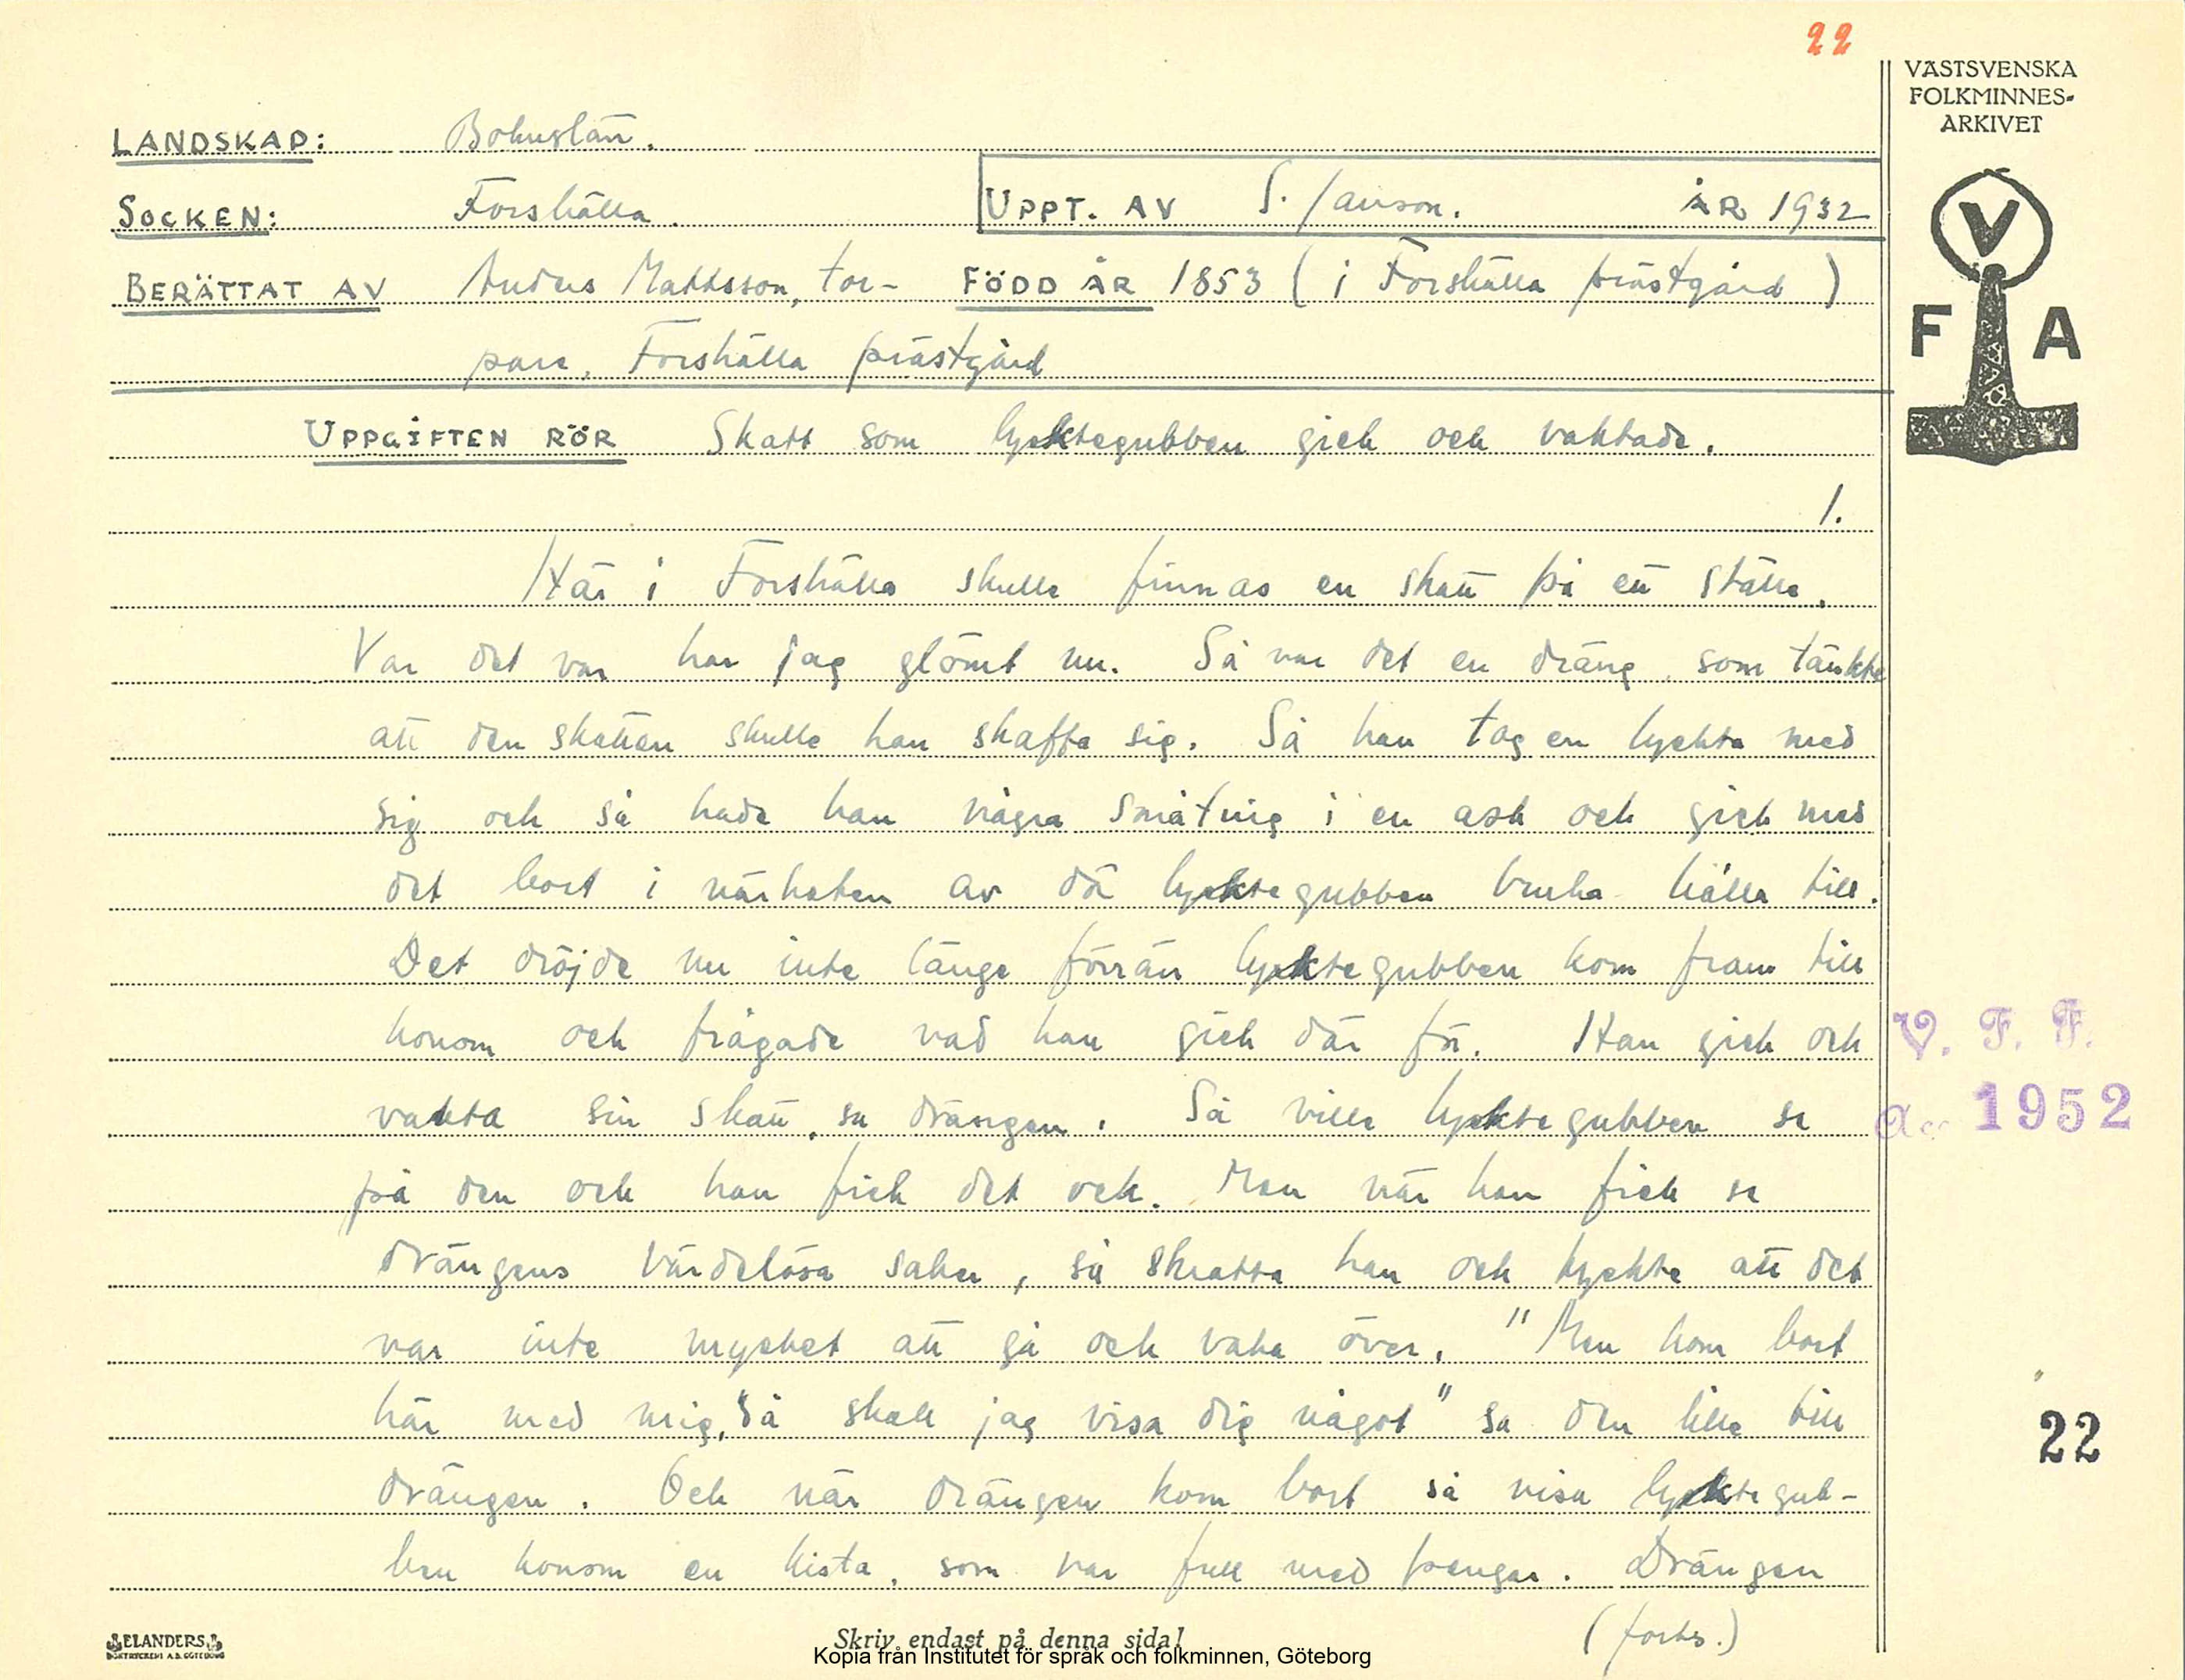 22
VÄSTSVENSKA
FOLKMINNES-
ARKIVET
LANDSKAP: Bohuslän.
SOCKEN: Forshälla. UPPT. AV S. Janson. ÅR 1932
BERÄTTAT AV Anders Mattsson, tor- FÖDD ÅR 1853 (i Forshälla prästgård)
pare, Forshälla prästgård
V
F A
UPPGIFTEN RÖR Skatt som lyktegubben gick och vaktade.
1.
Här i Forshälla skulle finnas en skatt på ett ställe.
Var det var har jag glömt nu. Så var det en dräng, som tänkte
att den skatten skulle han skaffa sig. Så han tog en lyckta med
sig och så hade han några småting i en ask och gick med
det bort i närheten av dä lyktegubben bruka hålla till.
Det dröjde nu inte länge förrän lyktegubben kom fram till
honom och frågade vad han gick där för. Han gick och
vakta sin skatt, sa drängen. Så ville lyktegubben se
på den och han fick det ock. Men när han fick se
drängens värdelösa saker, så skratta han och tyckte att det
var inte mycket att gå och vaka över. "Men kom bort
här med mig, så skall jag visa dig något" sa den lille till
drängen. Och när drängen kom bort så visa lyktegub-
ben honom en kista, som var full med pengar. Drängen
(forts.)
V. F. F.
1952
22
ELANDERS
BOKTRYCKERI A.B. GÖTEBORG
Skriv endast på denna sida!
Kopia från Institutet för språk och folkminnen, Göteborg